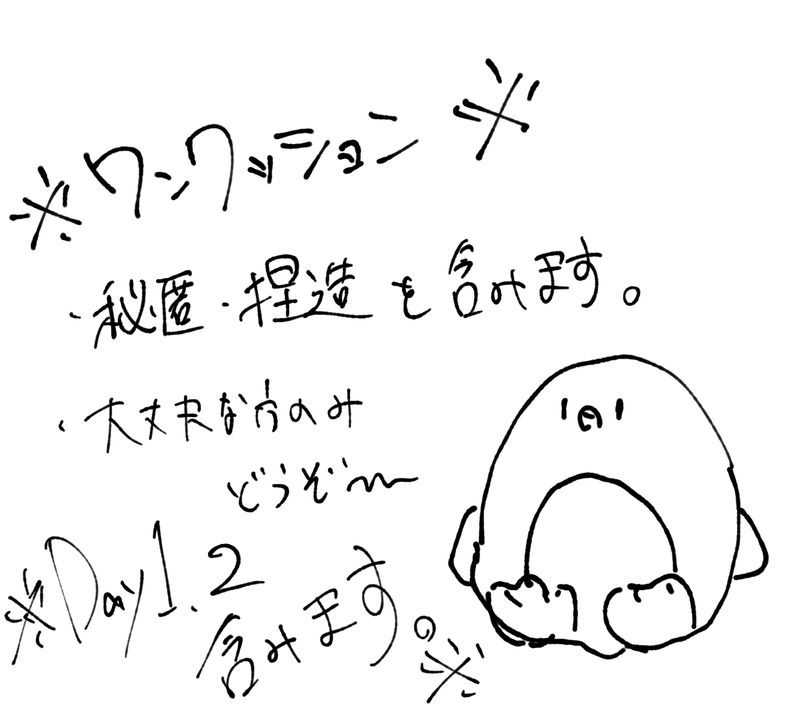 ※ワンクッション※
・秘匿・捏造を含みます。
・大丈夫な方のみ
どうぞ〜
※Day1.2
含みます。※